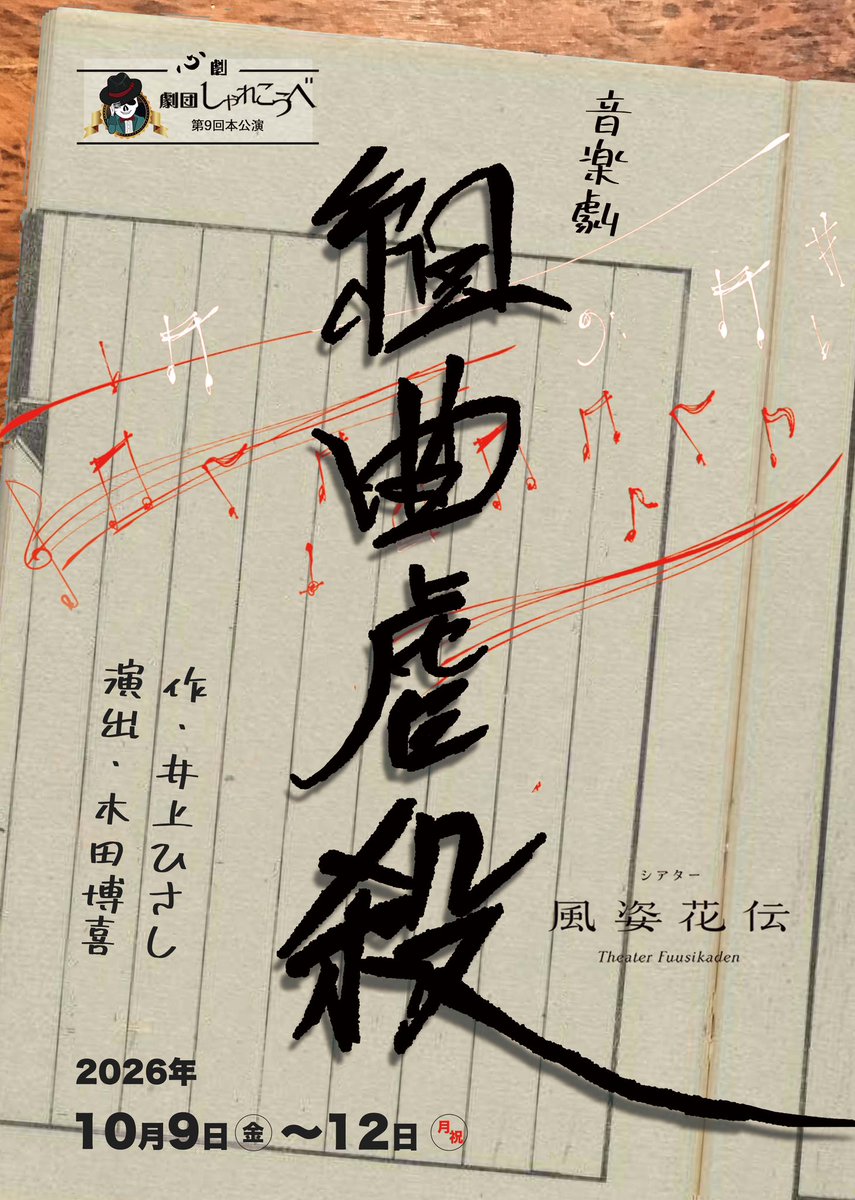 心劇
劇団しゃれこうべ
第9回本公演
音楽劇
組曲虐殺
作・井上ひさし
演出・木田博喜
シアター
風姿花伝
Theater Fuusikaden
2026年
10月9日㊎〜12日月祝